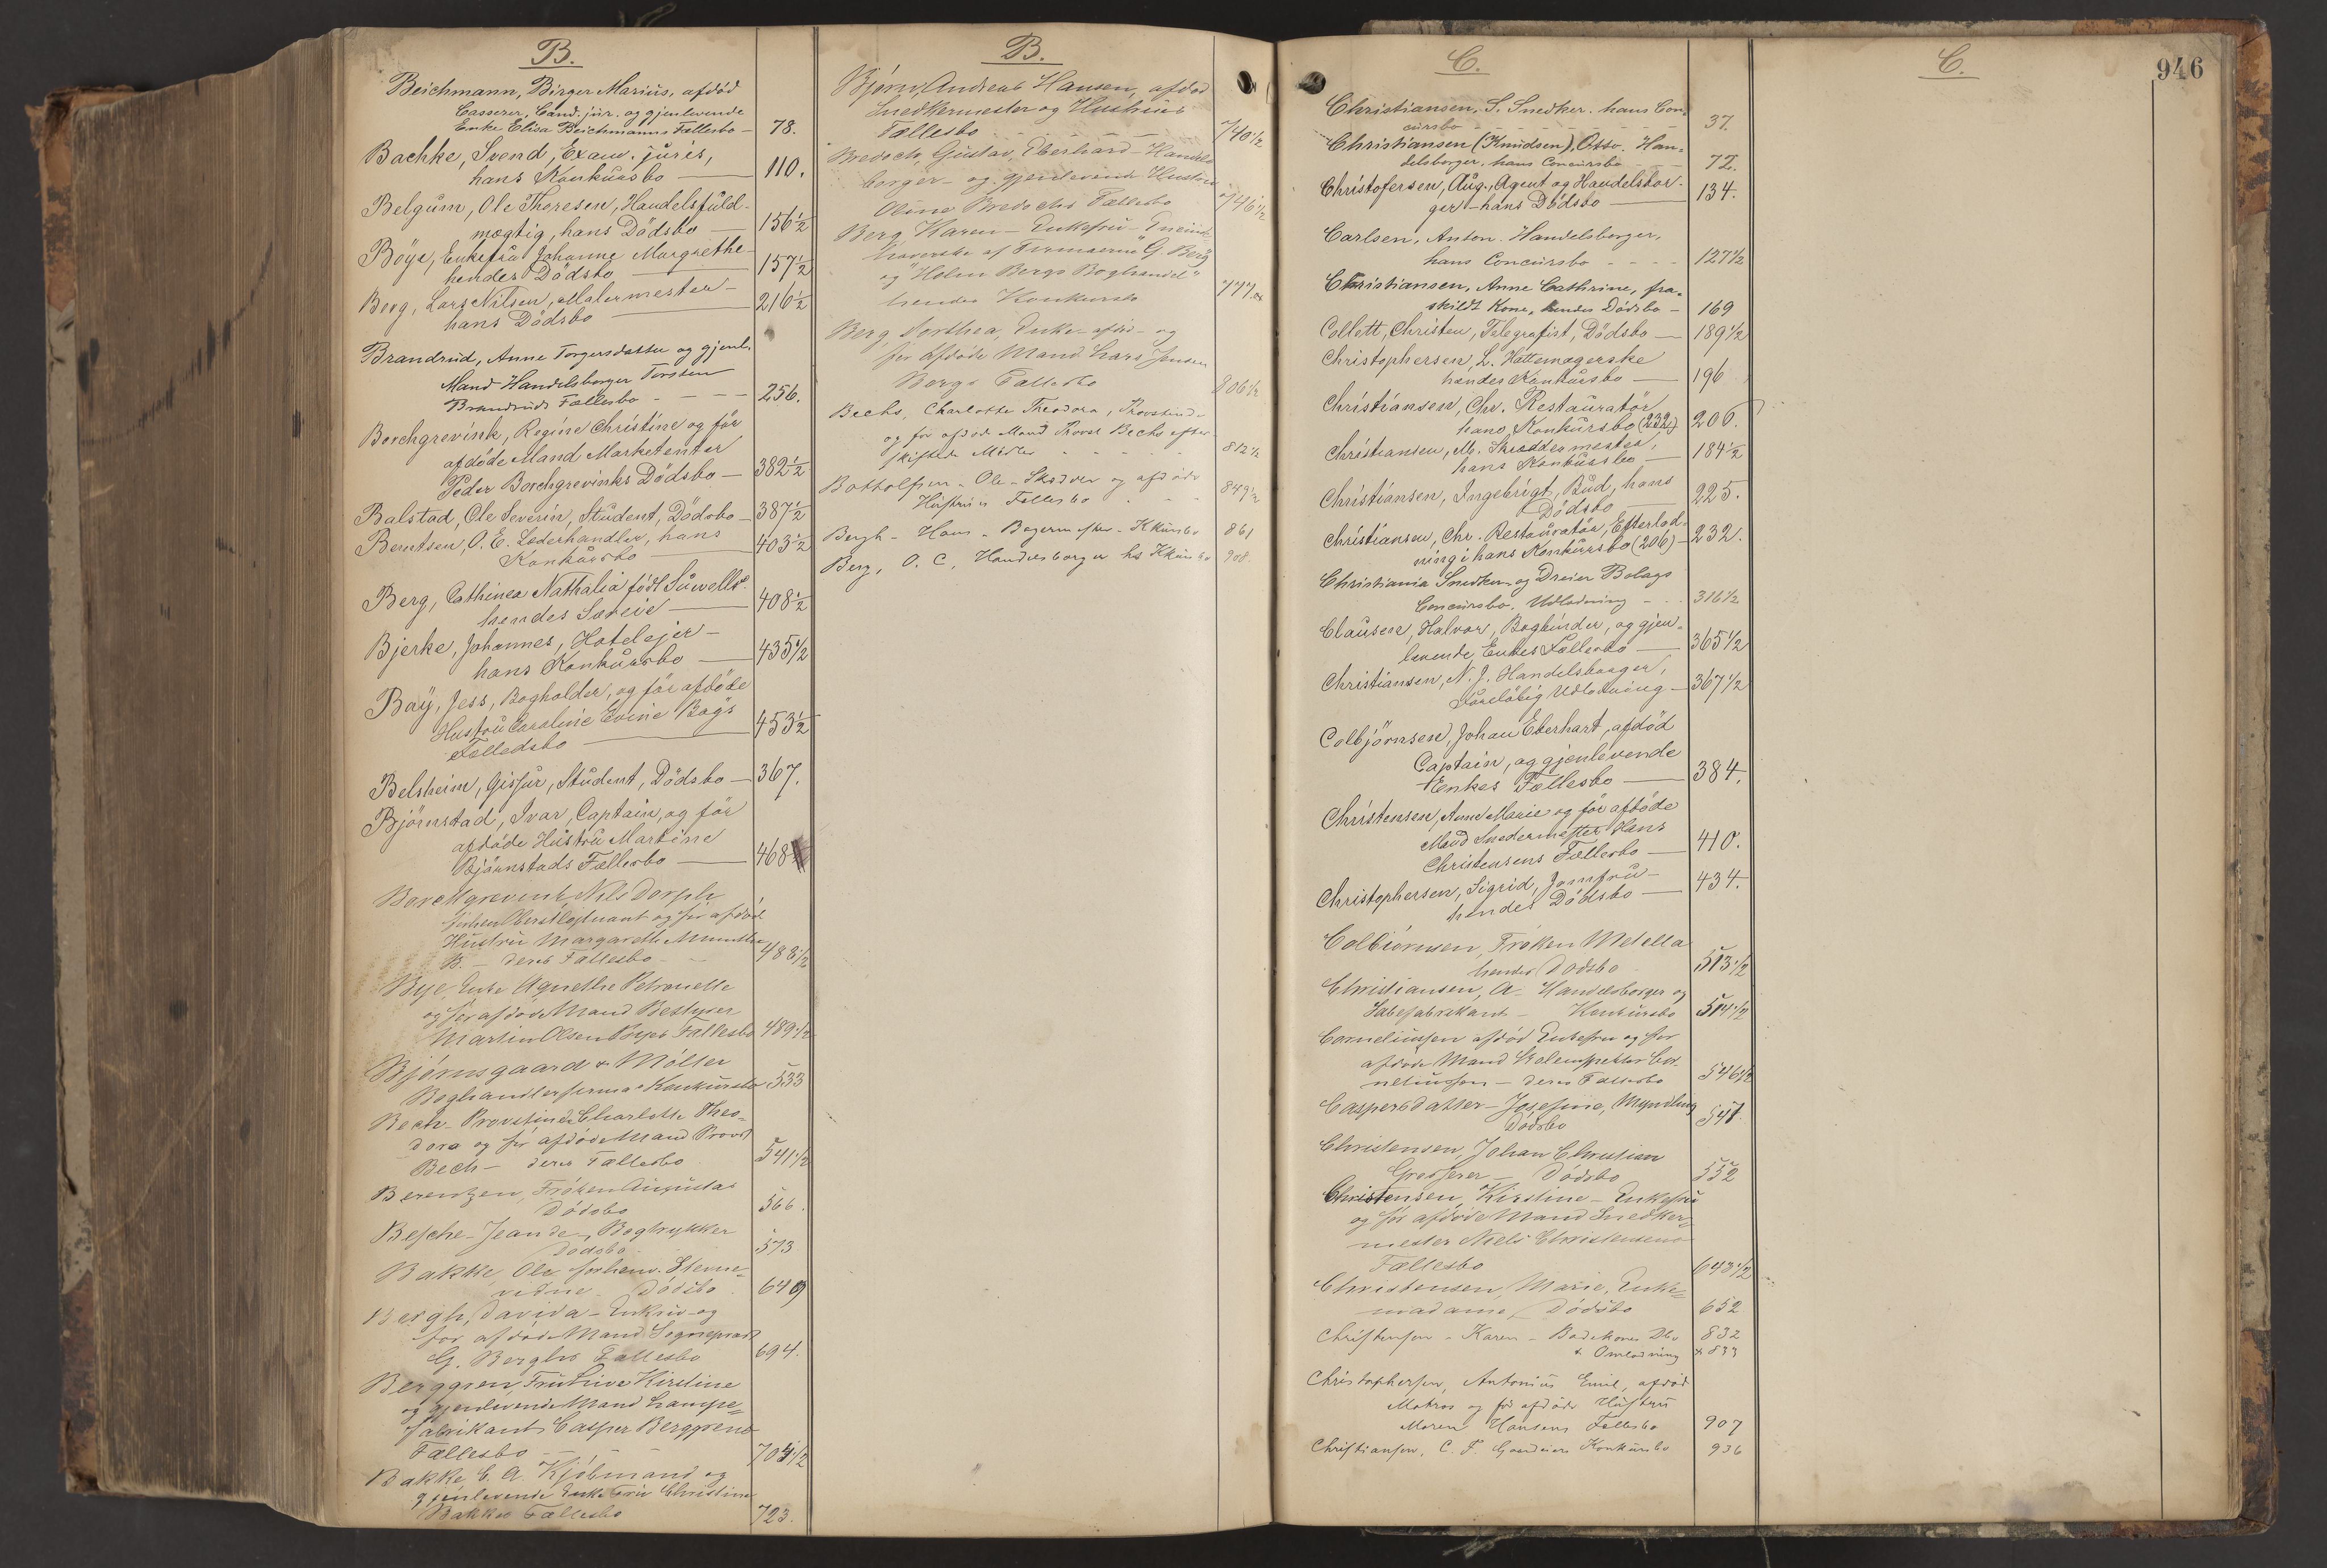 B.
Beichmann, Birger Marius, afdød
Casserer, Cand. jur. og gjenlevende
Enke Elisa Beichmanns Fællesbo - 78.
Bachke, Svend, Exam. juris,
hans Konkursbo - 110.
Belgum, Ole Thoresen, Handelsfuld-
mægtig, hans Dödsbo - 156 1/2
Böye, Enkefru Johanne Margrethe -
hendes Dödsbo - 157 1/2
Berg, Lars Nilsen, Malermester -
hans Dödsbo - 216 1/2
Brandrud, Anne Torgersdatter og gjenl.
Mand Handelsborger Torsten
Brandruds Fællesbo - - - 256.
Borchgrevink, Regine Christine og för
afdöde Mand Marketenter
Peder Borchgrevinks Dödsbo - 382 1/2
Balstad, Ole Severin, Student, Dödsbo - 387 1/2
Berntsen, O. E. Lederhandler, hans
Konkursbo - 403 1/2
Berg, Cathinca Nathalia födt
hendes Særeie - 408 1/2
Bjerke, Johannes, Hotelejer -
hans Konkursbo - 435 1/2
Bay, Jess, Bogholder, og för afdöde
Hustru Caroline Bays
Fælledsbo - 453 1/2
Belsheim, Gissur, Student, Dödsbo - 367.
Björnstad, Ivar, Captain, og för
afdöde Hustru Martine
Björnstads Fællesbo - 468
Borchgrevink, Nils Dorph
forhen Oberstlöjtnant og för afdöd
Hustru Margarethe
B. - deres Fællesbo - 488 1/2
Bye, Enke Agnethe Petronelle
og för afdöde Mand Bestyrer
Martin Olsen Byes Fællesbo 489 1/2
Björnsgaard & Möller
Boghandlerfirmas Konkursbo 533
Bech - Provstinde Charlotte Theo-
dora og för afdöde Mand Provst
Bech - deres Fællesbo 541 1/2
Berentzen, Fröken Augustas
Dödsbo 566.
Besche - Jean de, Bogtrykker
Dödsbo 573
Bakke, Ole forhenv.
Dödsbo 649
Bergh, Davida - Enkefru - og
for afdöde Mand Sogneprest
G. Berghs Fællesbo 694.
Berggren, Fru Kirstine
og gjenlevende Mand Lampe=
fabrikant Casper Berggrens
Fællesbo - 704 1/2
Bakke C. A. Kjöbmand og
gjenlevende Enke Fru Christine
Bakkes Fællesbo 723.
B.
Björn, Andreas Hansen, afdöd
Snedkermester og Hustrues
Fællesbo - - - - 740 1/2
Bredoch, Gustav, Eberhard - Handels
borger - og gjenlevende Hustru
Oline Bredochs Fællesbo 746 1/2
Berg Karen - Enkefru - Eneinde
haverske af Firmaerne "G. Berg"
og "Holm Bergs Boghandel"
hendes Konkursbo 777.
Berg, Dorthea, Enke - afdöd - og
for afdöde Mand Lars Jensen
Bergs Fællesbo 806 1/2
Bechs, Charlotte Theodora, Provstinde
og for afdöde Mand Provst Bechs efter-
skiftede Midler - - - 812 1/2
Botholfsen - Ole - Skrædder og afdöde
Hustrues Fællesbo - - 849 1/2
Bergh - Hans - Bagermester - Kkursbo 861
Berg, O. C. Handelsborger hs Kkursbo 908.
C.
Christiansen, S. Snedker. hans Con=
cursbo - - - - 37.
Christiansen (Knudsen), Otto. Han=
delsborger, hans Concursbo - - 72.
Christofersen, Aug., Agent og Handelsbor-
ger - hans Dödsbo - 134.
Carlsen, Anton. Handelsborger,
hans Concursbo - - - - 127 1/2
Christiansen, Anne Cathrine, fra=
skildt Kone, hendes Dödsbo - 169
Collett, Christen, Telegrafist, Dödsbo - 189 1/2
Christophersen, L. Hattemagerske
hendes Konkursbo - 196
Christiansen, Chr. Restauratör
hans Konkursbo (232) 206.
Christiansen, M. Skræddermester,
hans Konkursbo - 184 1/2
Christiansen, Ingebrigt, Bud, hans
Dödsbo - 225.
Christiansen, Chr. Restauratör, Efterlod-
ning i hans Konkursbo (206) - 232.
Christiania Snedker og Dreier Bolags
Concursbo. Udlodning - - 316 1/2
Clausen, Halvor, Bogbinder, og gjen=
levende Enkes Fællesbo - 365 1/2
Christiansen, N. J. Handelsborger,
Foreløbig Udlodning - 367 1/2
Colbjörnsen, Johan Eberhart, afdöd
Captain, og gjenlevende
Enkes Fællesbo - 384.
Christensen, Anne Marie og för afdöde
Mand Snedermester Hans
Christensens Fællesbo - 410.
Christophersen, Sigrid, Jomfru -
hendes Dödsbo - 434.
Colbiörnsen, Fröken Metella
hendes Dödsbo 513 1/2
Christiansen, A - Handelsborger og
Sæbefabrikant - Konkursbo 514 1/2
Corneliussen afdöd Enkefru og för
afdöde Mand Skoleinspektör Cor
neliussen - deres Fællesbo 546 1/2
Caspersdatter - Josefine, Myndling
Dödsbo 547.
Christensen, Johan Christian
Grosserer - Dödsbo 552
Christensen, Kirstine - Enkefru
og för afdöde Mand Snedker=
mester Niels Christensens
Fællesbo 643 1/2
Christensen, Marie, Enke=
madame, Dödsbo 652
Christensen - Karen - Badekones Dbo 832
& Omlodning & 833
Christophersen, Antonius Emil, afdöd
Matros og för afdöde Hustru
Maren Hansens Fællesbo 907
Christiansen, C. F. Gaardeiers Konkursbo 936
C.
946